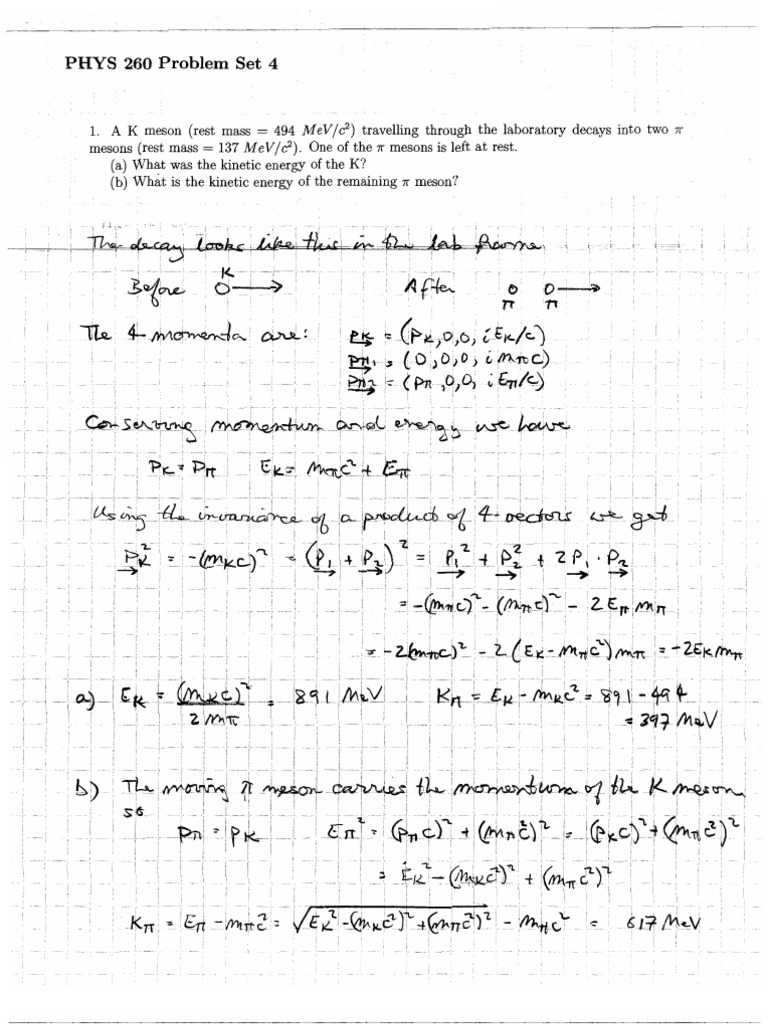 PHYS 260 Problem Set 4
1. A K meson (rest mass = 494 MeV/c²) travelling through the laboratory decays into two π
mesons (rest mass = 137 MeV/c²). One of the π mesons is left at rest.
(a) What was the kinetic energy of the K?
(b) What is the kinetic energy of the remaining π meson?
The decay looks like this in the lab frame
K
Before O⟶ After O O⟶
π π
The 4-momenta are: PK = (PK,0,0, iEK/c)
Pπ1 = (0,0,0, i mπc)
Pπ2 = (Pπ,0,0, iEπ/c)
Conserving momentum and energy we have
PK = Pπ EK = mπc² + Eπ
Using the invariance of a product of 4-vectors we get
PK² = -(mKc)² = (P1 + P2)² = P1² + P2² + 2P1·P2
= -(mπc)² - (mπc)² - 2Eπ mπ
= -2(mπc)² - 2(EK - mπc²)mπ = -2EK mπ
a) EK = (mKc)² / 2mπ = 891 MeV Kπ = EK - mKc² = 891 - 494
= 397 MeV
b) The moving π meson carries the momentum of the K meson,
so
Pπ = PK Eπ² = (Pπc)² + (mπc²)² = (PKc)² + (mπc²)²
= EK² - (mKc²)² + (mπc²)²
Kπ = Eπ - mπc² = √(EK² - (mKc²)² + (mπc²)²) - mπc² = 617 MeV